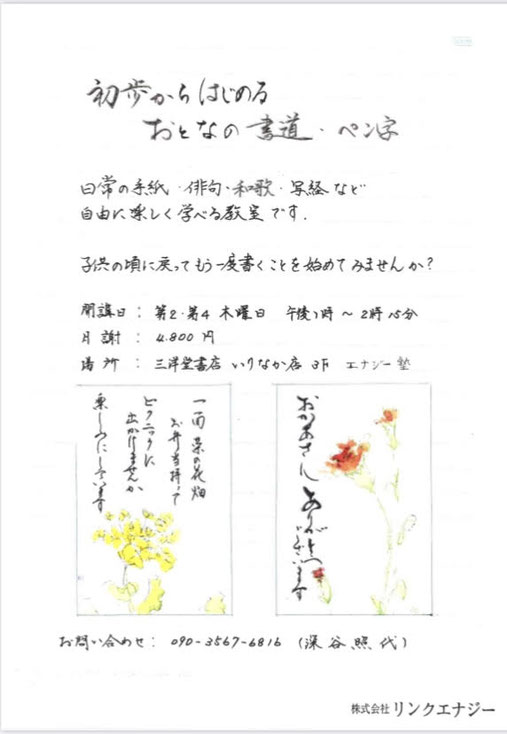 初歩からはじめる
おとなの書道・ペン字
日常の手紙・俳句・和歌・写経など
自由に楽しく学べる教室です.
子供の頃に戻ってもう一度書くことを始めてみませんか?
開講日 : 第2・第4 木曜日 午後1時 ~ 2時15分
月謝 : 4.800円
場所 : 三洋堂書店 いりなか店 3F エナジー塾
一面菜の花畑
お弁当持って
ピクニックに
出かけませんか
楽しみにしています
おかあさん
ありがとう
ございます
お問い合わせ: 090-3567-6816 (深谷照代)
株式会社 リンクエナジー